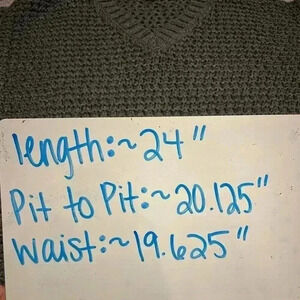 length:~24"
Pit to Pit:~20.125"
waist:~19.625"